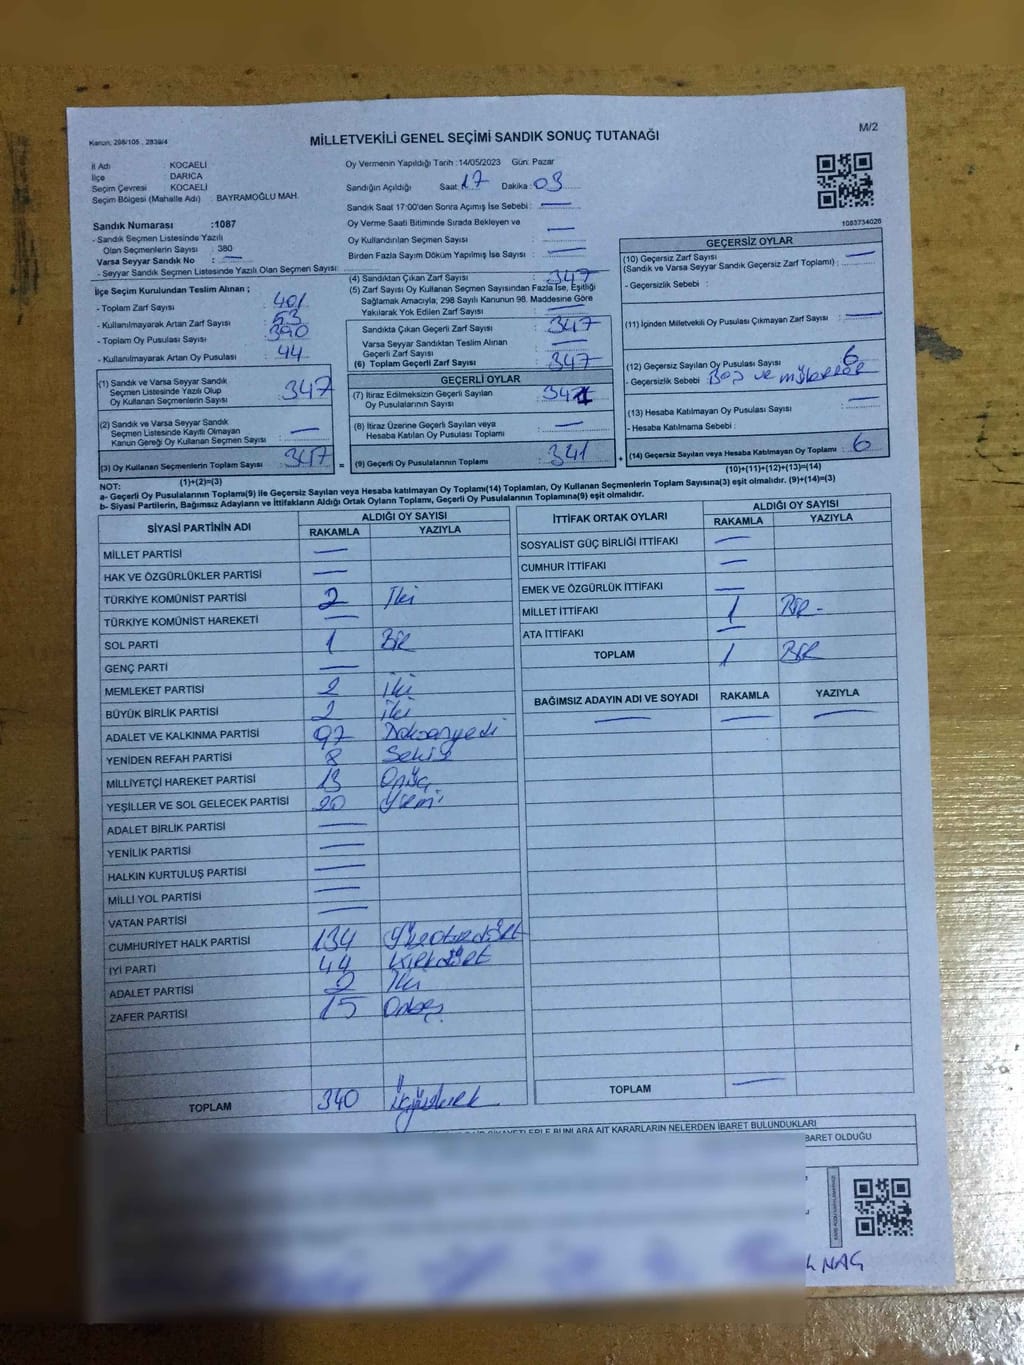 M/2
Kanun, 298/105 , 2839/4
MİLLETVEKİLİ GENEL SEÇİMİ SANDIK SONUÇ TUTANAĞI
İl Adı KOCAELİ
İlçe DARICA
Seçim Çevresi KOCAELİ
Seçim Bölgesi (Mahalle Adı) : BAYRAMOĞLU MAH.
Oy Vermenin Yapıldığı Tarih :14/05/2023 Gün: Pazar
Sandığın Açıldığı Saat: 17 Dakika : 03
Sandık Saat 17:00'den Sonra Açımış İse Sebebi : —
Oy Verme Saati Bitiminde Sırada Bekleyen ve
Oy Kullandırılan Seçmen Sayısı : —
Birden Fazla Sayım Döküm Yapılmış İse Sayısı : —
1083734026
Sandık Numarası :1087
- Sandık Seçmen Listesinde Yazılı
Olan Seçmenlerin Sayısı : 380
Varsa Seyyar Sandık No : —
- Seyyar Sandık Seçmen Listesinde Yazılı Olan Seçmen Sayısı:
İlçe Seçim Kurulundan Teslim Alınan ;
- Toplam Zarf Sayısı : 401
- Kullanılmayarak Artan Zarf Sayısı : 53
- Toplam Oy Pusulası Sayısı : 390
- Kullanılmayarak Artan Oy Pusulası : 44
(1) Sandık ve Varsa Seyyar Sandık
Seçmen Listesinde Yazılı Olup
Oy Kullanan Seçmenlerin Sayısı : 347
(2) Sandık ve Varsa Seyyar Sandık
Seçmen Listesinde Kayıtlı Olmayan
Kanun Gereği Oy Kullanan Seçmen Sayısı : —
(3) Oy Kullanan Seçmenlerin Toplam Sayısı : 347
(1)+(2)=(3)
(4) Sandıktan Çıkan Zarf Sayısı : 347
(5) Zarf Sayısı Oy Kullanan Seçmen Sayısından Fazla İse, Eşitliği
Sağlamak Amacıyla; 298 Sayılı Kanunun 98. Maddesine Göre
Yakılarak Yok Edilen Zarf Sayısı : —
Sandıkta Çıkan Geçerli Zarf Sayısı : 347
Varsa Seyyar Sandıktan Teslim Alınan
Geçerli Zarf Sayısı : —
(6) Toplam Geçerli Zarf Sayısı : 347
GEÇERLİ OYLAR
(7) İtiraz Edilmeksizin Geçerli Sayılan
Oy Pusulalarının Sayısı : 341
(8) İtiraz Üzerine Geçerli Sayılan veya
Hesaba Katılan Oy Pusulası Toplamı : —
= (9) Geçerli Oy Pusulalarının Toplamı : 341 +
GEÇERSİZ OYLAR
(10) Geçersiz Zarf Sayısı
(Sandık ve Varsa Seyyar Sandık Geçersiz Zarf Toplamı) : —
- Geçersizlik Sebebi :
(11) İçinden Milletvekili Oy Pusulası Çıkmayan Zarf Sayısı : —
(12) Geçersiz Sayılan Oy Pusulası Sayısı : 6
- Geçersizlik Sebebi : Boş ve mükerrer
(13) Hesaba Katılmayan Oy Pusulası Sayısı : —
- Hesaba Katılmama Sebebi :
(14) Geçersiz Sayılan veya Hesaba Katılmayan Oy Toplamı : 6
(10)+(11)+(12)+(13)=(14)
NOT:
a- Geçerli Oy Pusulalarının Toplamı(9) ile Geçersiz Sayılan veya Hesaba katılmayan Oy Toplamı(14) Toplamları, Oy Kullanan Seçmenlerin Toplam Sayısına(3) eşit olmalıdır. (9)+(14)=(3)
b- Siyasi Partilerin, Bağımsız Adayların ve İttifakların Aldığı Ortak Oyların Toplamı, Geçerli Oy Pusulalarının Toplamına(9) eşit olmalıdır.
SİYASİ PARTİNİN ADI ALDIĞI OY SAYISI
RAKAMLA YAZIYLA
MİLLET PARTİSİ —
HAK VE ÖZGÜRLÜKLER PARTİSİ —
TÜRKİYE KOMÜNİST PARTİSİ 2 İki
TÜRKİYE KOMÜNİST HAREKETİ —
SOL PARTİ 1 BİR
GENÇ PARTİ —
MEMLEKET PARTİSİ 2 iki
BÜYÜK BİRLİK PARTİSİ 2 iki
ADALET VE KALKINMA PARTİSİ 97 Doksanyedi
YENİDEN REFAH PARTİSİ 8 Sekiz
MİLLİYETÇİ HAREKET PARTİSİ 13 Onüç
YEŞİLLER VE SOL GELECEK PARTİSİ 20 Yirmi
ADALET BİRLİK PARTİSİ —
YENİLİK PARTİSİ —
HALKIN KURTULUŞ PARTİSİ —
MİLLİ YOL PARTİSİ —
VATAN PARTİSİ —
CUMHURİYET HALK PARTİSİ 134 Yüzotuzdört
İYİ PARTİ 44 Kırkdört
ADALET PARTİSİ 2 İki
ZAFER PARTİSİ 15 Onbeş
TOPLAM 340 Üçyüzkırk
İTTİFAK ORTAK OYLARI ALDIĞI OY SAYISI
RAKAMLA YAZIYLA
SOSYALİST GÜÇ BİRLİĞİ İTTİFAKI —
CUMHUR İTTİFAKI —
EMEK VE ÖZGÜRLÜK İTTİFAKI —
MİLLET İTTİFAKI 1 BİR -
ATA İTTİFAKI —
TOPLAM 1 BİR
BAĞIMSIZ ADAYIN ADI VE SOYADI RAKAMLA YAZIYLA
— — —
TOPLAM —
BUNLARA AİT KARARLARIN NELERDEN İBARET BULUNDUKLARI
İBARET OLDUĞU
NAG